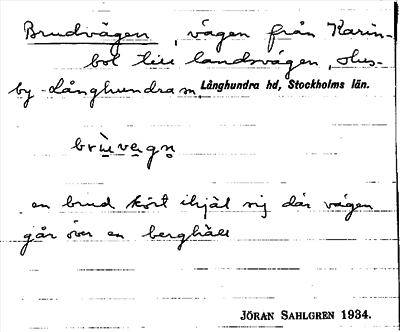 Brudvägen, vägen från Karin-
bol till landsvägen, Hus-
by-Långhundra sn, Långhundra hd, Stockholms län.
brùvęgn̥
en brud kört ihjäl sig där vägen
går över en berghäll
JÖRAN SAHLGREN 1934.